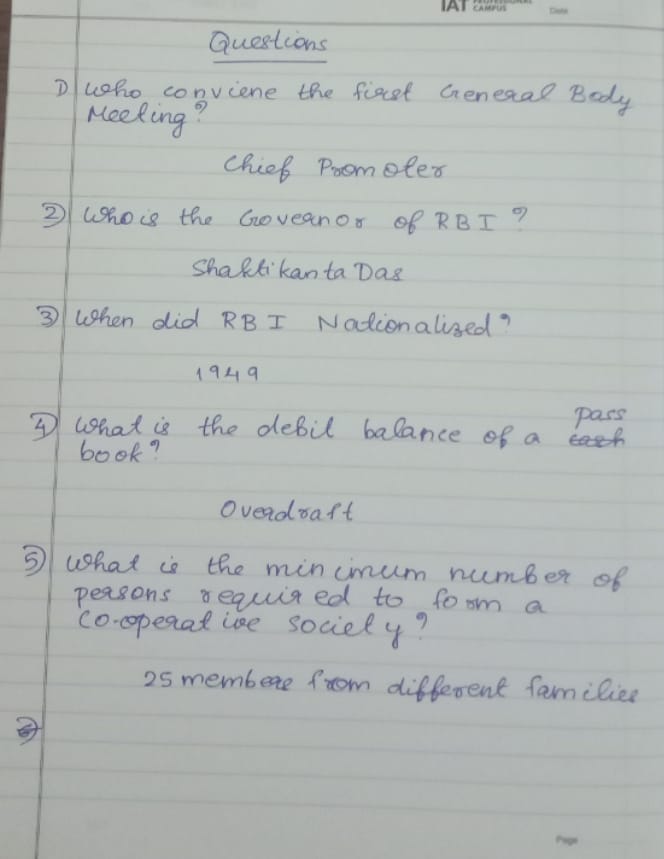 IAT CAMPUS
Date
Questions
1) Who conviene the first General Body
Meeting?
Chief Promoter
2) Who is the Governor of RBI?
Shaktikanta Das
3) When did RBI Nationalized?
1949
4) What is the debit balance of a pass
book?
Overdraft
5) What is the minimum number of
persons required to form a
Co-operative society?
25 members from different families
Page